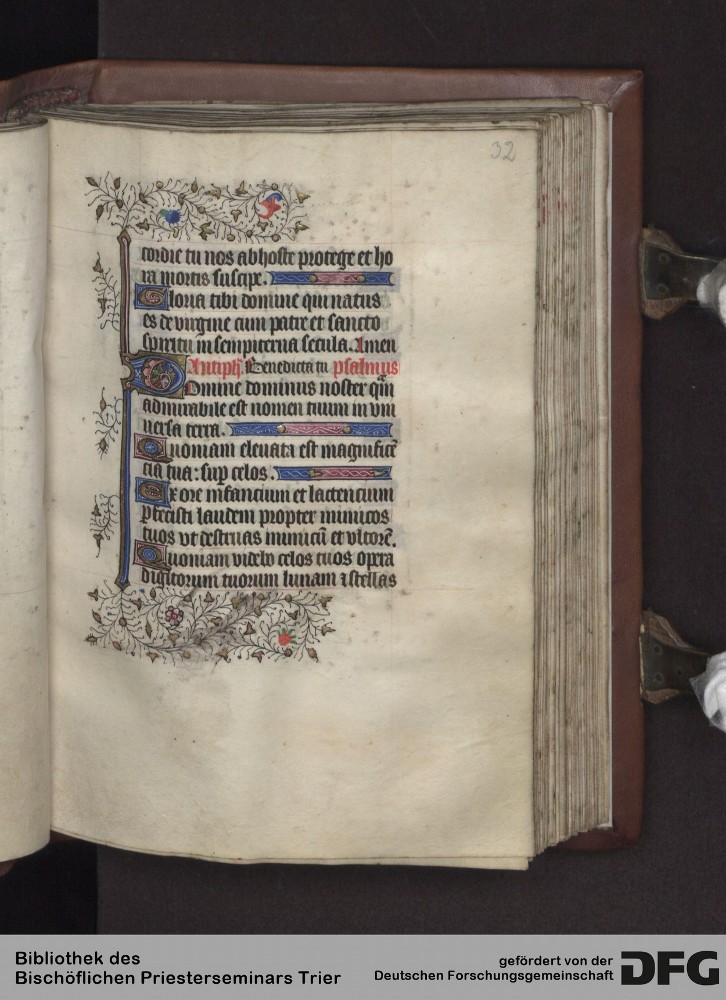 32
cordie tu nos ab hoste protege et ho
ra mortis suscipe.
Gloria tibi domine qui natus
es de virgine cum patre et sancto
spiritu in sempiterna secula. Amen
Antiph̄. Benedicta tu psalmus
Domine dominus noster qm̄
admirabile est nomen tuum in vni
uersa terra.
Quoniam eleuata est magnificē
cia tua: sup celos.
Ex ore infancium et lactencium
ꝑfecisti laudem propter inimicos
tuos vt destruas inimicū et vltorē.
Quoniam videbo celos tuos opera
digitorum tuorum lunam ⁊ stellas
Bibliothek des
Bischöflichen Priesterseminars Trier
gefördert von der
Deutschen Forschungsgemeinschaft
DFG